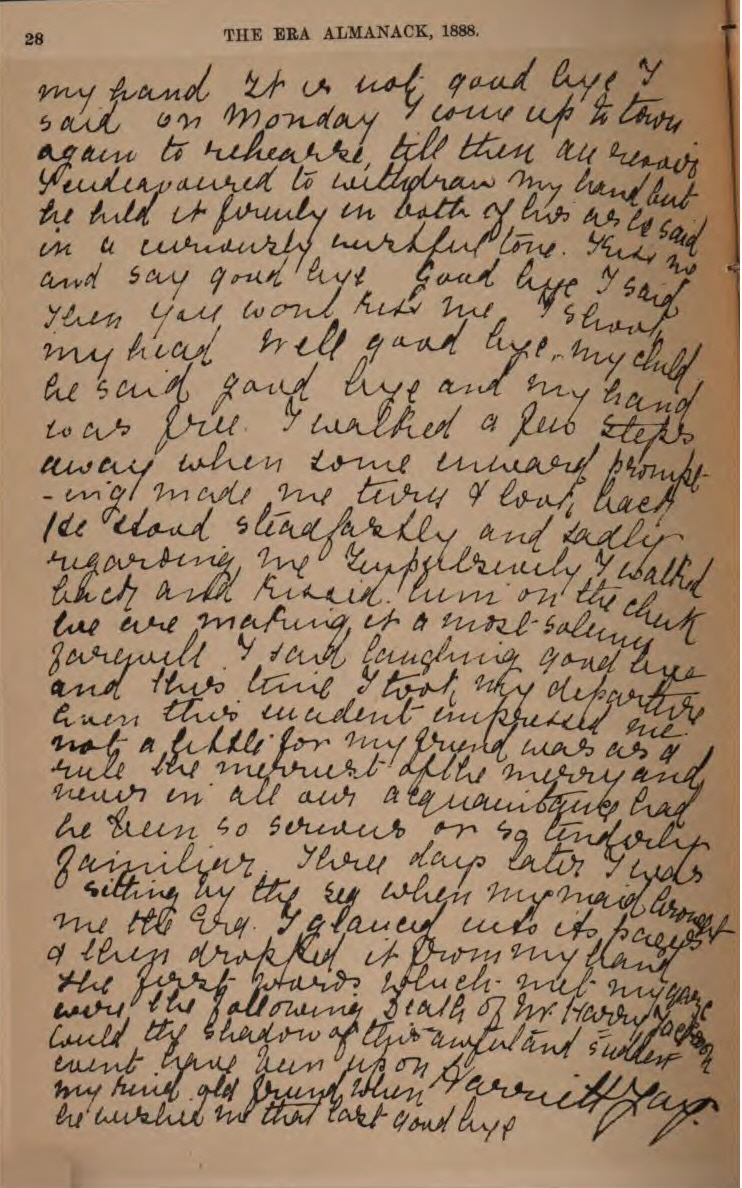 28
THE ERA ALMANACK, 1888.
my hand It is not good bye I
said on Monday I come up to town
again to rehearse, till then au revoir
I endeavoured to withdraw my hand but
he held it firmly in both of his as he said
in a curiously wistful tone. Kiss me
and say good bye Good bye I said
Then you wont kiss me I shook
my head Well good bye, my child
he said good bye and my hand
was free. I walked a few steps
away when some inward prompt-
-ing made me turn & look back
He stood steadfastly and sadly
regarding me Impulsively I walked
back and kissed him on the cheek
We are making it a most solemn
farewell I said laughing good bye
and this time I took my departure
Even this incident impressed me
not a little for my friend was as a
rule the merriest of the merry and
never in all our acquaintance had
he been so serious or so tenderly
familiar. Three days later I was
sitting by the sea when my maid brought
me the Era. I glanced into its pages
& then dropped it from my hand
the first words which met my gaze
were the following Death of Mr. Harry Jackson
Could the shadow of this awful and sudden
event have been upon
my kind old friend when
he wished me that last good bye
Harriett Jay.